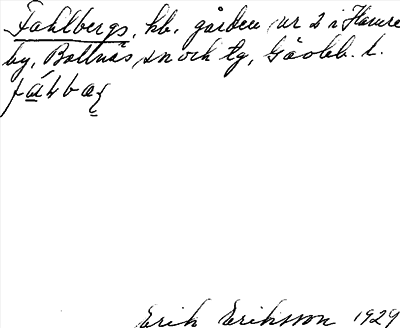 Fahlbergs, hb. gården nr 2 i Hamre
by, Bollnäs sn och tg, Gävleb. l.
Erik Eriksson 1929